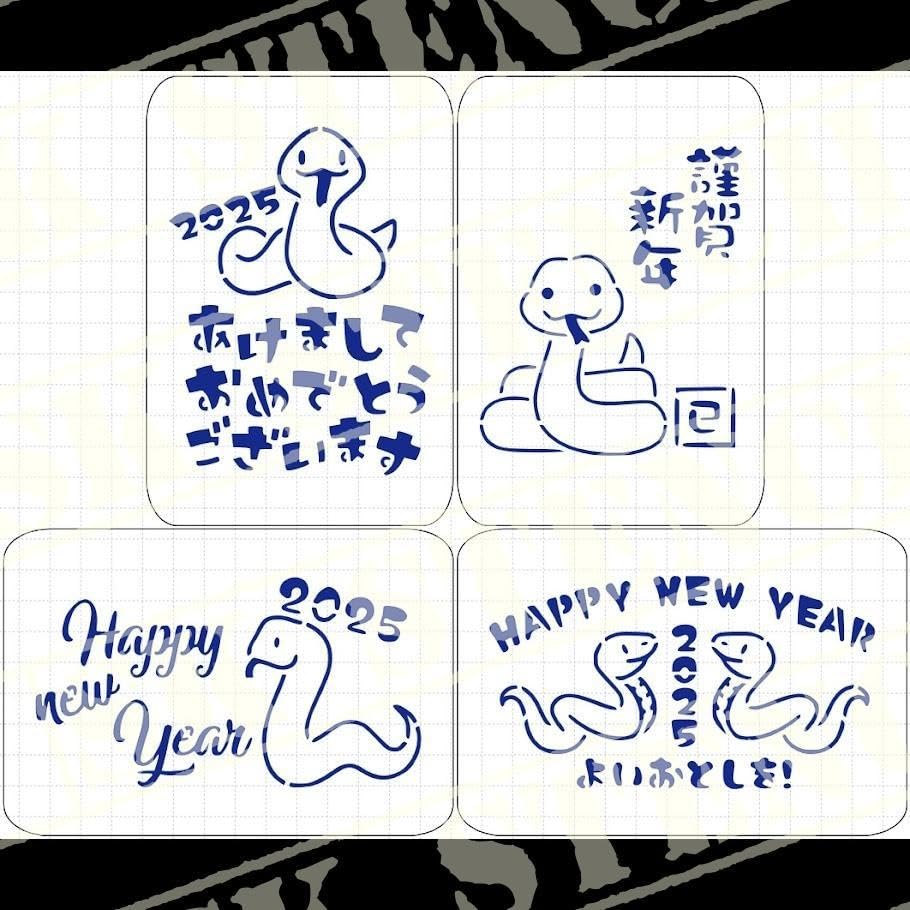 2025
あけまして
おめでとう
ございます
謹賀
新年
巳
Happy
new
Year
2025
HAPPY NEW YEAR
2025
よいおとしを!